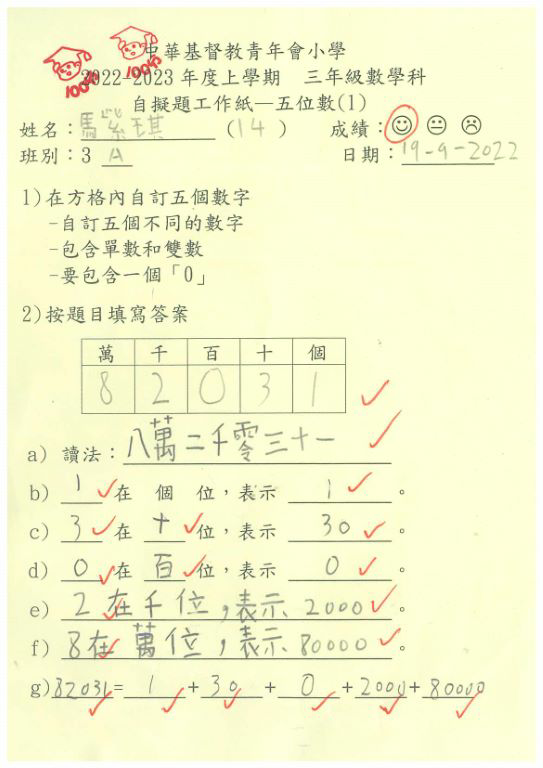 中華基督教青年會小學
2022-2023 年度上學期 三年級數學科
自擬題工作紙—五位數(1)
姓名：馬紫琪 (14) 成績：
班別：3 A 日期：19-9-2022
1)在方格內自訂五個數字
-自訂五個不同的數字
-包含單數和雙數
-要包含一個「0」
2)按題目填寫答案
萬 千 百 十 個
8 2 0 3 1
a) 讀法：八萬二千零三十一
b) 1 在 個 位，表示 1 。
c) 3 在 十 位，表示 30 。
d) 0 在 百 位，表示 0 。
e) 2在千位，表示 2000 。
f) 8在萬位，表示 80000 。
g) 82031= 1 + 30 + 0 + 2000 + 80000